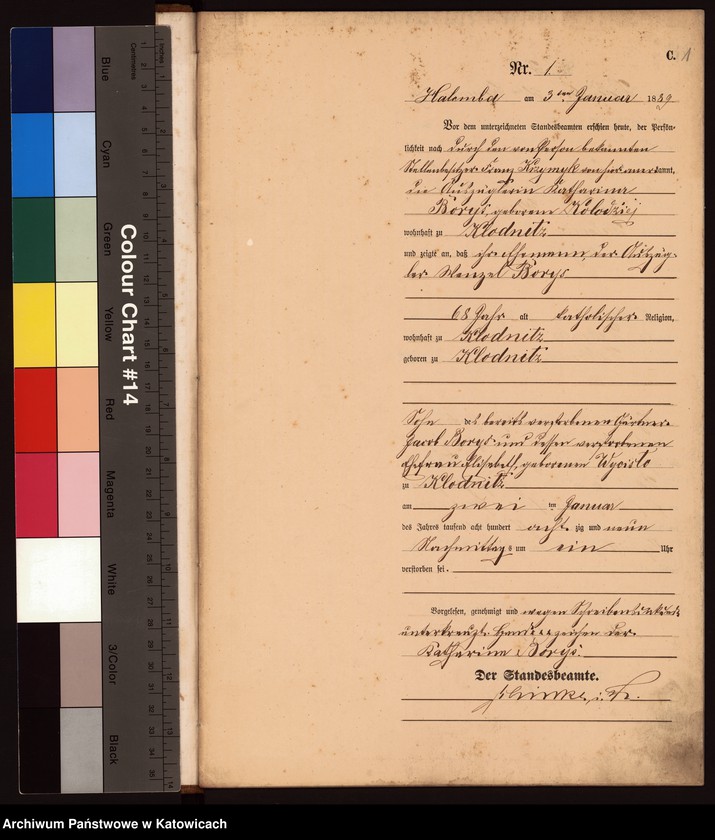 Blue
Cyan
Green
Yellow
Red
Magenta
White
3/Color
Black
Centimetres
Inches
Colour Chart #14
C. 1
Nr. 1.
Halemba am 3ten Januar 1889
Vor dem unterzeichneten Standesbeamten erschien heute, der Persön-
lichkeit nach durch den von Person bekannten
Stellenbesitzer Franz von hier anerkannt,
die Auszüglerin Katharina
Borys, geborene Kolodziej
wohnhaft zu Klodnitz
und zeigte an, daß ihr Ehemann, der Auszüg-
ler Wenzel Borys
68 Jahr alt katholischer Religion,
wohnhaft zu Klodnitz
geboren zu Klodnitz
Sohn des bereits verstorbenen Gärtner
Jacob Borys und dessen verstorbenen
Ehefrau Elisabeth, geborenen Wycislo
zu Klodnitz
am zwei ten Januar
des Jahres tausend acht hundert acht zig und neun
Nachmittags um ein Uhr
verstorben sei.
Vorgelesen, genehmigt und wegen Schreibensunkunde
unterkreuzt. Handzeichen der
Katharina Borys.
Der Standesbeamte.
Archiwum Państwowe w Katowicach